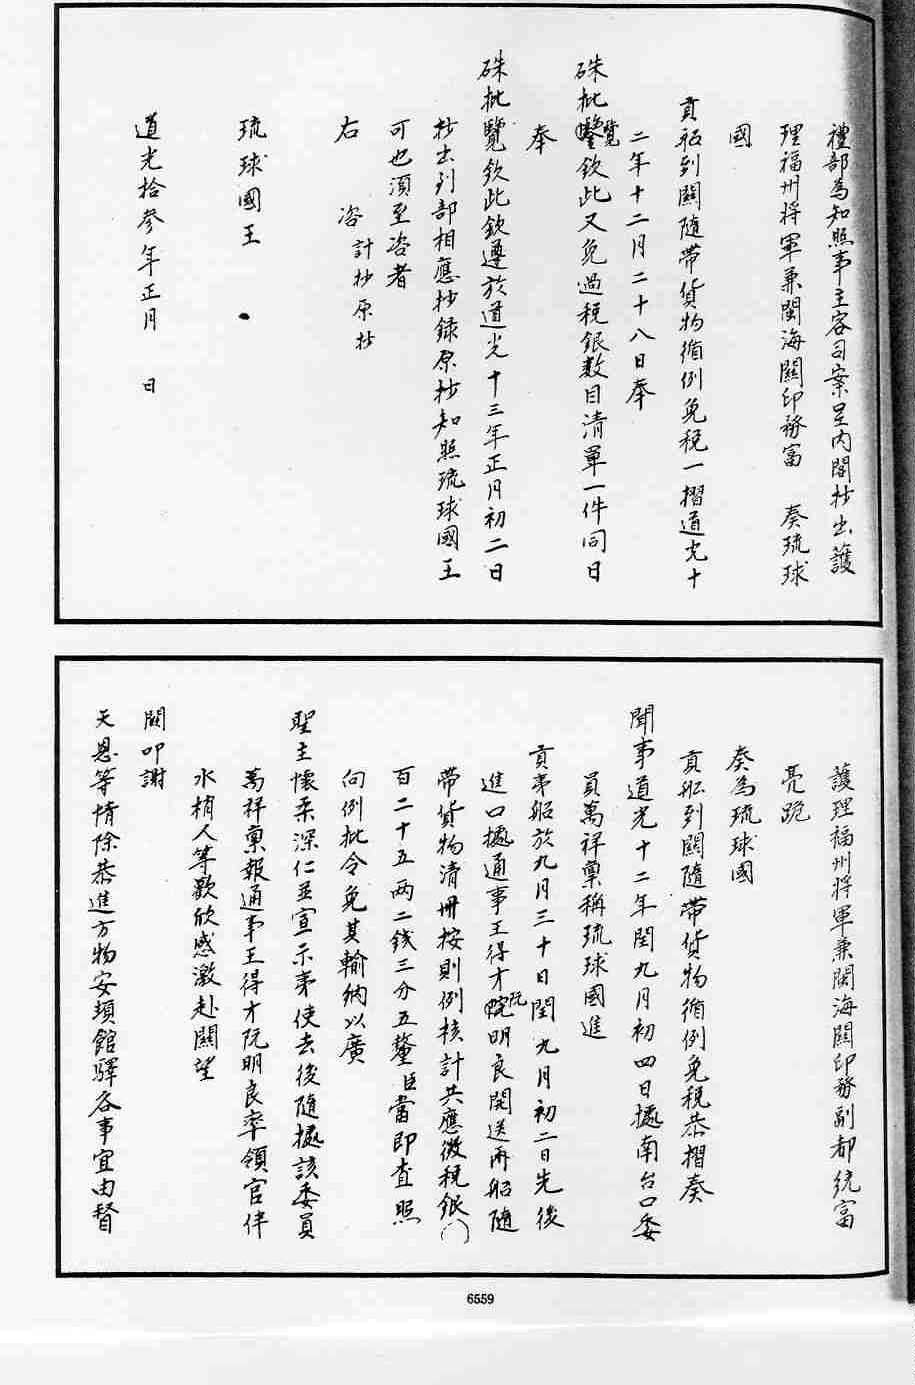 禮部為知照事主客司案呈內閣抄出護
理福州將軍兼閩海關印務富　奏琉球
國
貢船到關隨帶貨物循例免稅一摺道光十
二年十二月二十八日奉
硃批覽欽此又免過稅銀數目清單一件同日
奉
硃批覽欽此欽遵於道光十三年正月初二日
抄出到部相應抄錄原抄知照琉球國王
可也須至咨者
計抄原抄
右　咨
琉球國王
道光拾參年正月　日
護理福州將軍兼閩海關印務副都統富
亮跪
奏為琉球國
貢船到關隨帶貨物循例免稅恭摺奏
聞事道光十二年閏九月初四日據南台口委
員萬祥稟稱琉球國進
貢弍船於九月三十日閏九月初二日先後
進口據通事王得才阮明良開送兩船隨
帶貨物清冊按則例核計共應徵稅銀
百二十五兩二錢三分五釐臣當即查照
向例批令免其輸納以廣
聖主懷柔深仁並宣示弍使去後隨據該委員
萬祥稟報通事王得才阮明良率領官伴
水梢人等歡欣感激赴關望
闕叩謝
天恩等情除恭進方物安頓館驛各事宜由督
6559